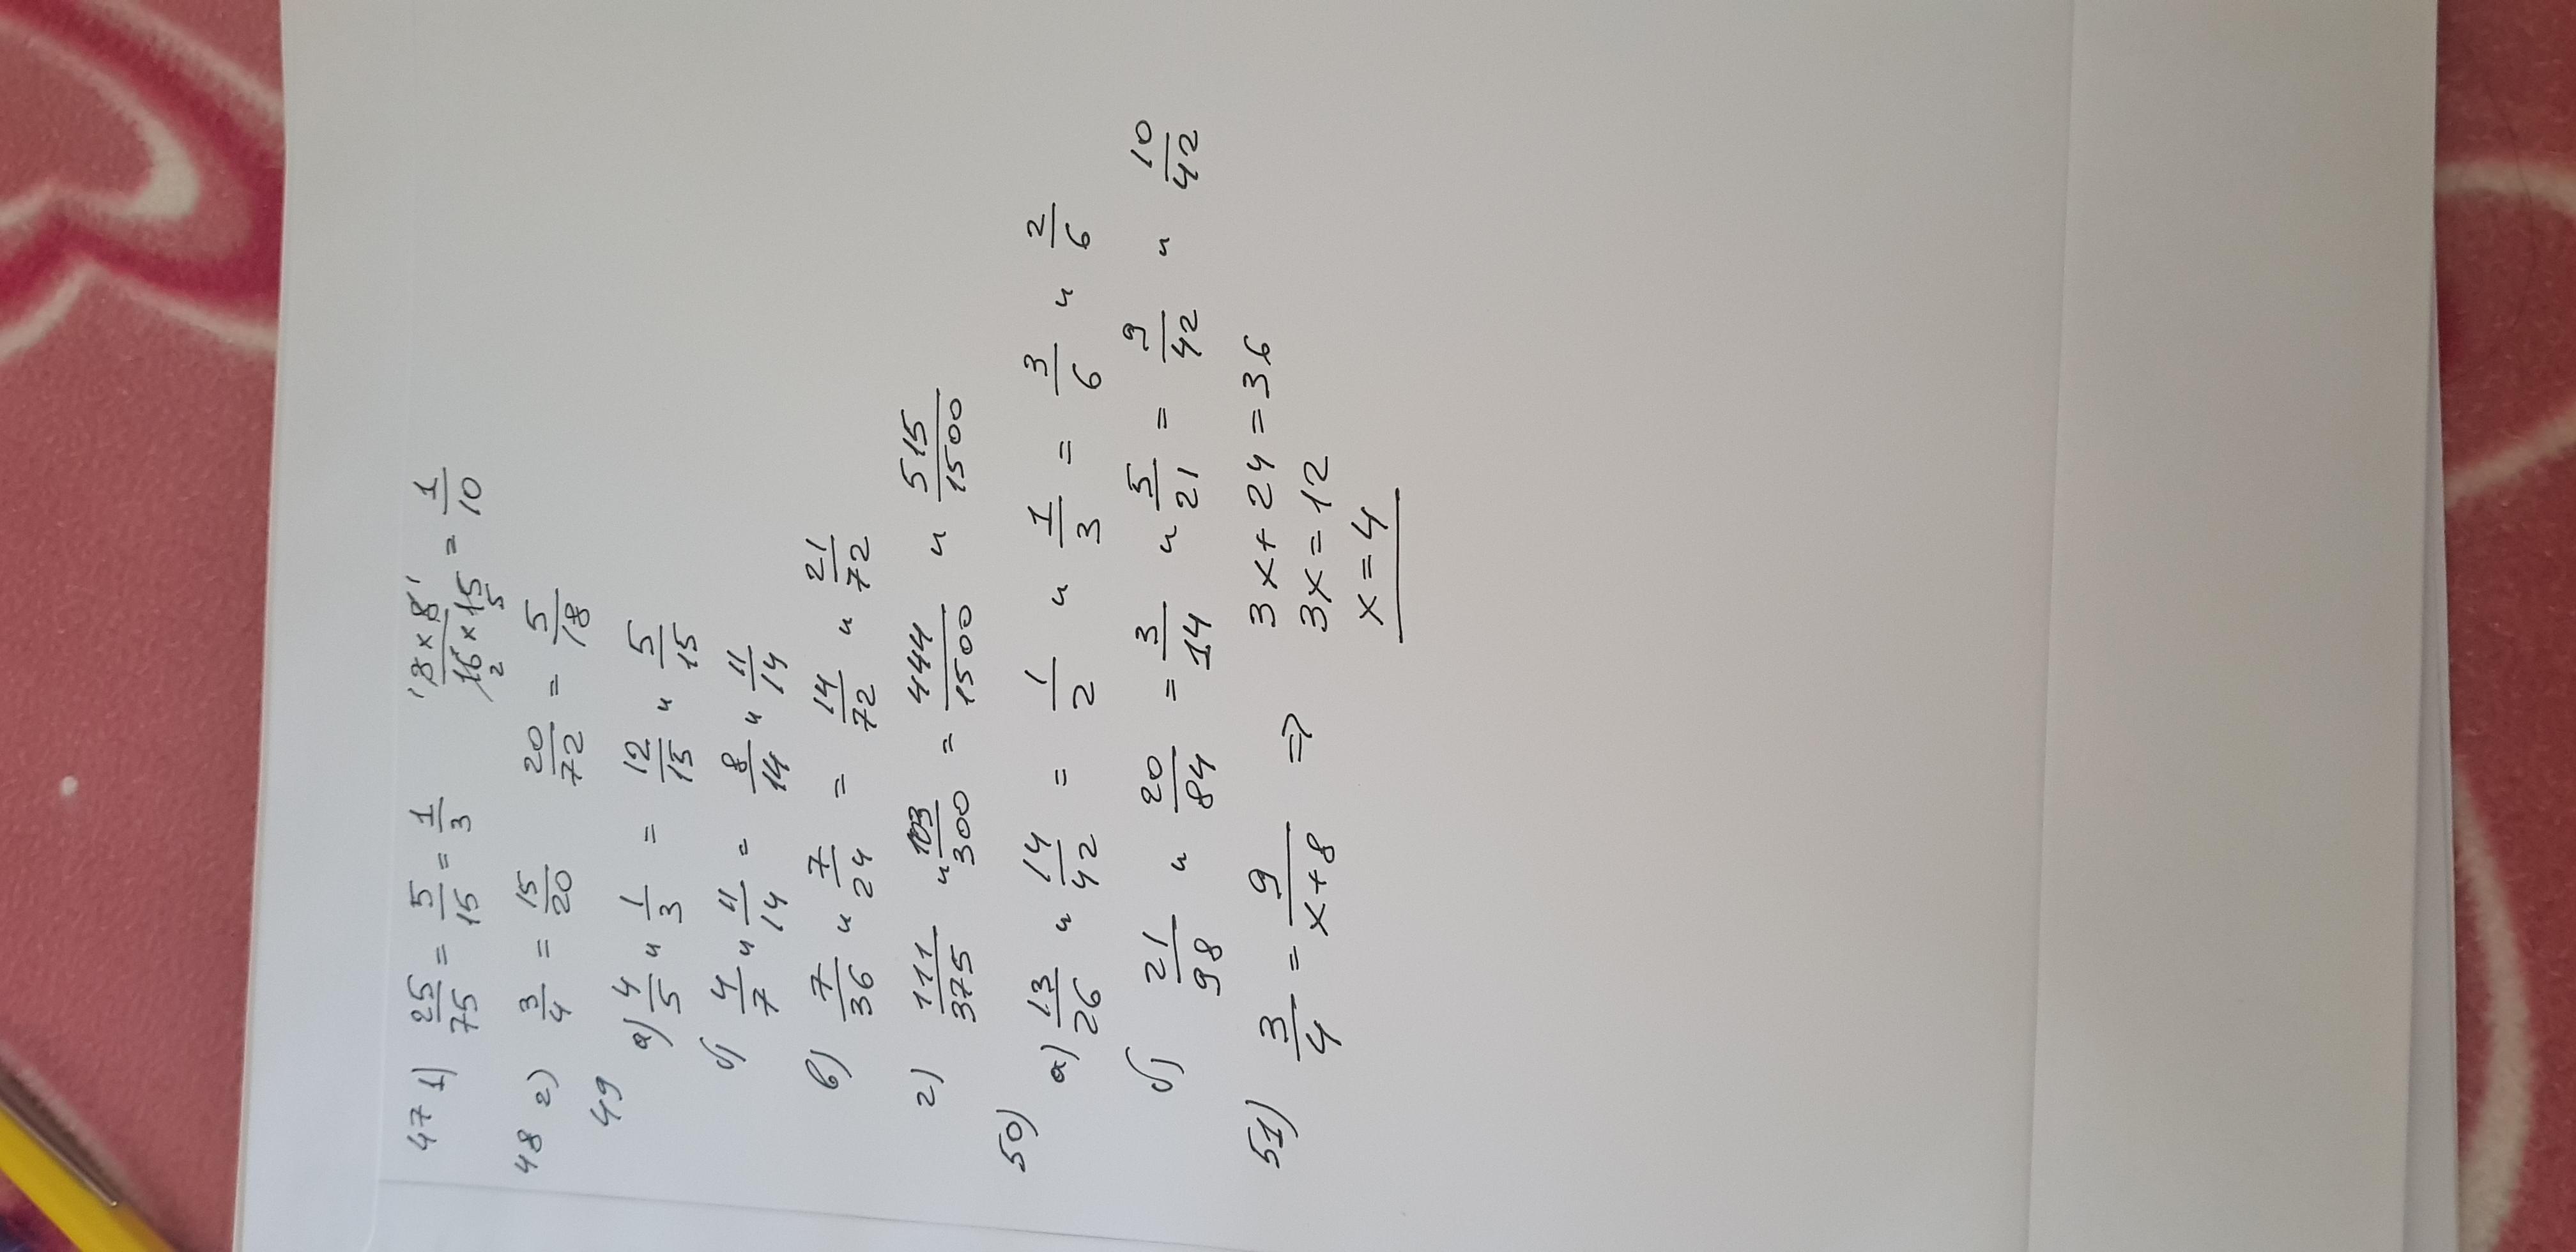 47 1) 25/75 = 5/15 = 1/3   3×8/16×15 = 1/10
48 2) 3/4 = 15/20   20/72 = 5/18
49
а) 4/5 и 1/3 = 12/15 и 5/15
б) 4/7 и 11/14 = 8/14 и 11/14
в) 7/36 и 7/24 = 14/72 и 21/72
г) 111/375 и 103/300 = 444/1500 и 515/1500
50)
а) 13/26 и 14/42 = 1/2 и 1/3 = 3/6 и 2/6
б) 21/98 и 20/84 = 3/14 и 5/21 = 9/42 и 10/42
51) 3/4 = 9/x+8 => 3x+24=36
3x=12
x=4